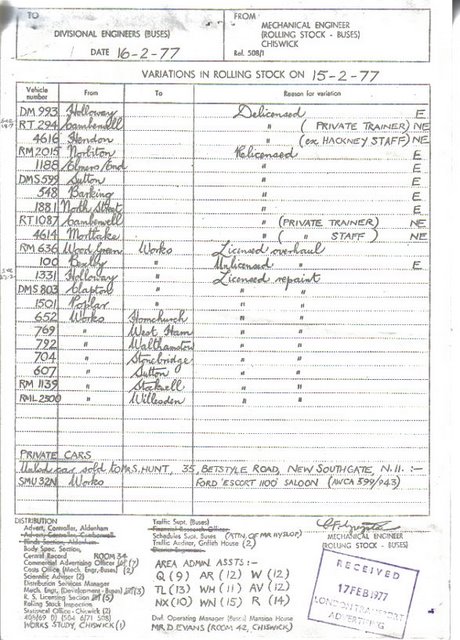 TO
DIVISIONAL ENGINEERS (BUSES)
DATE 16-2-77
FROM
MECHANICAL ENGINEER
(ROLLING STOCK - BUSES)
CHISWICK
Ref. 508/1
VARIATIONS IN ROLLING STOCK ON 15-2-77
Vehicle number From To Reason for variation
DM 993 Holloway Delicensed E
RT 294 Camberwell " (PRIVATE TRAINER) NE
4616 Hendon " (ex HACKNEY STAFF) NE
RM 2015 Norbiton Relicensed E
1188 Elmers End " E
DMS 599 Sutton " E
548 Barking " E
1881 North Street " E
RT 1087 Camberwell " (PRIVATE TRAINER) NE
4614 Mortlake " ( " STAFF ) NE
RM 636 Wood Green Works Licensed overhaul
100 Bexley " Unlicensed " E
1331 Holloway " Licensed repaint
DMS 803 Clapton " " "
1501 Poplar " " "
652 Works Hornchurch " "
769 " West Ham " "
792 " Walthamstow " "
704 " Stonebridge " "
607 " Sutton " "
RM 1139 " Stockwell " "
RML 2300 " Willesden " "
PRIVATE CARS
car sold to MR S. HUNT, 35, BETSTYLE ROAD, NEW SOUTHGATE, N.11. :-
SMU 32N Works FORD 'ESCORT 1100' SALOON (AWCA 599/943)
DISTRIBUTION
Advert. Controller, Aldenham
Advert. Controller, Camberwell
Body Spec. Section,
Central Record ROOM 34
Commercial Advertising Officer (7)
Costs Office (Mech. Eng. Buses) (2)
Scientific Adviser (2)
Distribution Services Manager
Mech. Engr. (Development - Buses) (3)
R. S. Licensing Section (5)
Rolling Stock Inspection
Statistical Office - Chiswick (2)
WORKS STUDY, CHISWICK (1)
Traffic Supt. (Buses)
Financial Research Officer
Schedules Supt. (Buses) (ATTN. OF MR HYSLOP)
Traffic Auditor, Griffith House (2)
AREA ADMIN ASSTS :-
Q (9) AR (12) W (12)
TL (13) WH (11) AV (12)
NX (10) WN (15) R (14)
Dvl. Operating Manager (Buses) Mansion House
MR D. EVANS (ROOM 42, CHISWICK)
MECHANICAL ENGINEER
(ROLLING STOCK - BUSES)
RECEIVED
17 FEB 1977
LONDON TRANSPORT
ADVERTISING